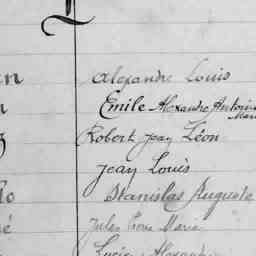 en Alexandre Louis
Emile Alexandre Antoine
Marie
Robert Jean Léon
Jean Louis
Stanislas Auguste
é Jules Marie
Lucien Alexandre